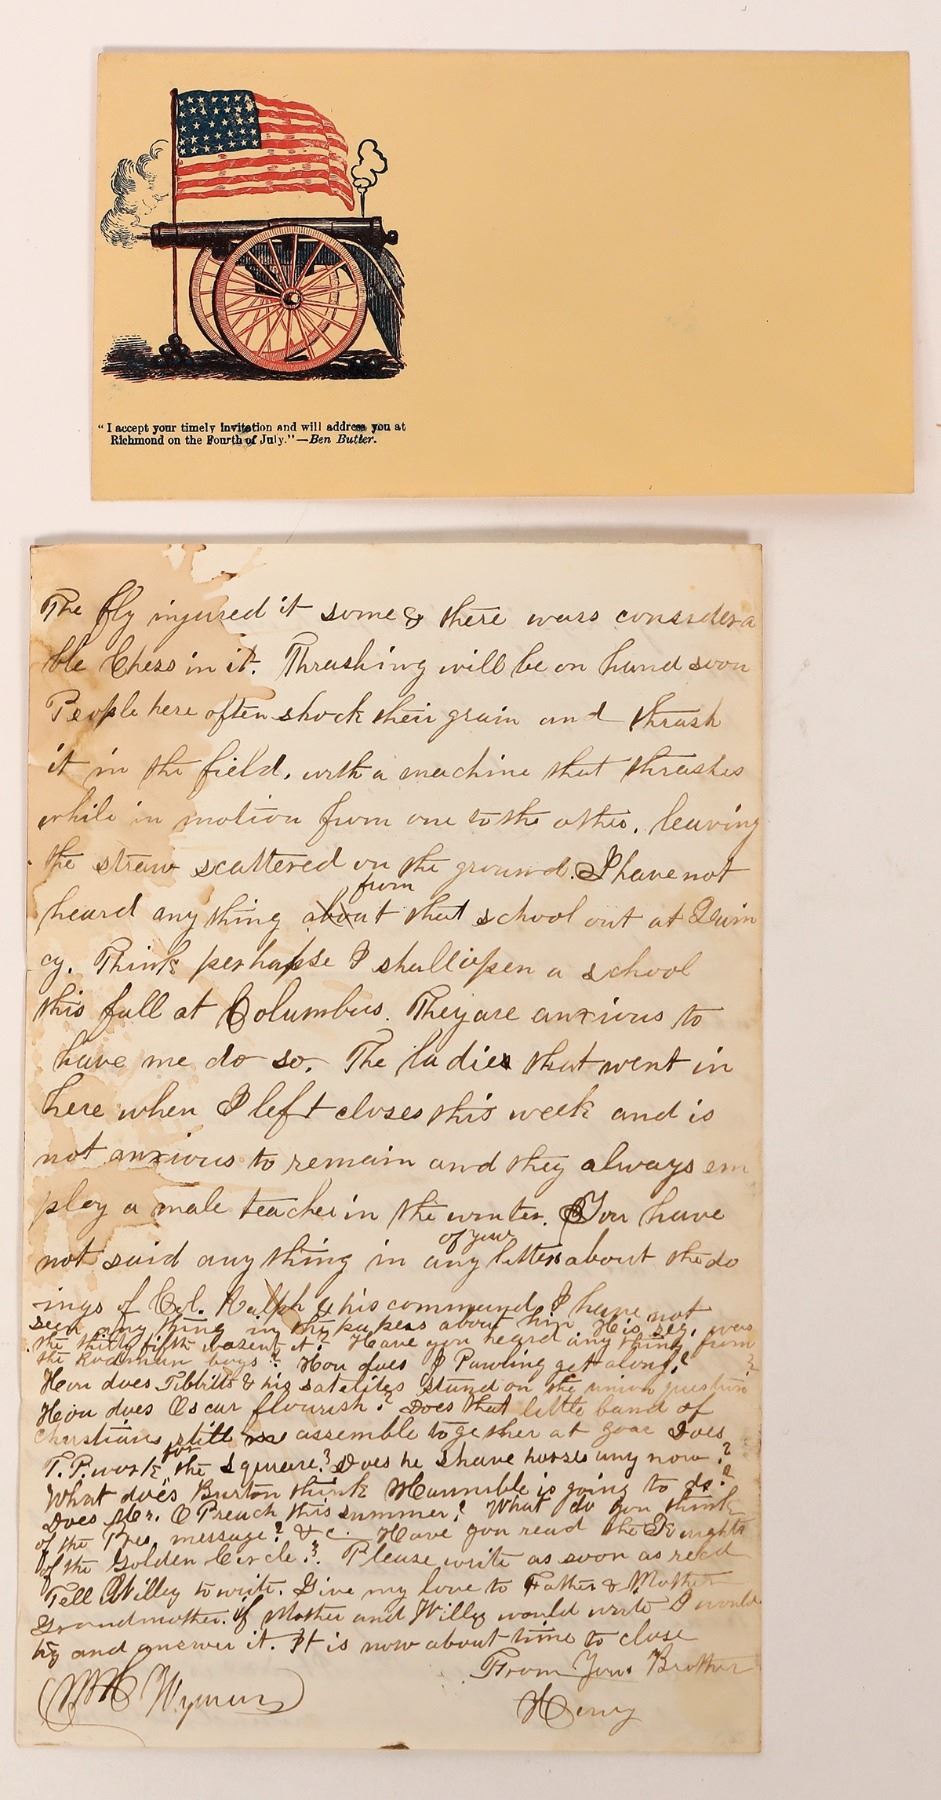 "I accept your timely invitation and will address you at
Richmond on the Fourth of July."—Ben Butler.
The fly injured it some & there was considera
ble Chess in it. Thrashing will be on hand soon
People here often shock their grain and thrash
it in the field, with a machine that thrashes
while in motion from one to the other, leaving
the straw scattered on the ground. I have not
from
heard any thing about that school out at Quin
cy. Think perhapse I shall open a school
this fall at Columbus. They are anxious to
have me do so. The ladies that went in
here when I left closes this week and is
not anxious to remain and they always em
ploy a male teacher in the winter. You have
of your
not said any thing in any letters about the do
ings of Col. Ralph & his command. I have not
seen any thing in the papers about him. His reg. was
the thirty fifth wasent it? Have you heard any thing from
the Rodman boys? How does J Pawling get along?
How does Tibbitts & his satelites stand on the union question?
How does Oscar flourish? Does that little band of
Christians still assemble together at Does
for
T.P. work the square? Does he shave horses any now?
What does Burton think Hannible is going to do?
Does Mr. C Preach this summer? What do you think
of the Pres. message? & c. Have you read the Knights
of the Golden Circle? Please write as soon as recd
Tell Willey to write. Give my love to Father & Mother
Grandmother. if Mother and Willy would write I would
try and answer it. It is now about time to close
From Your Brother
Wyman Henry